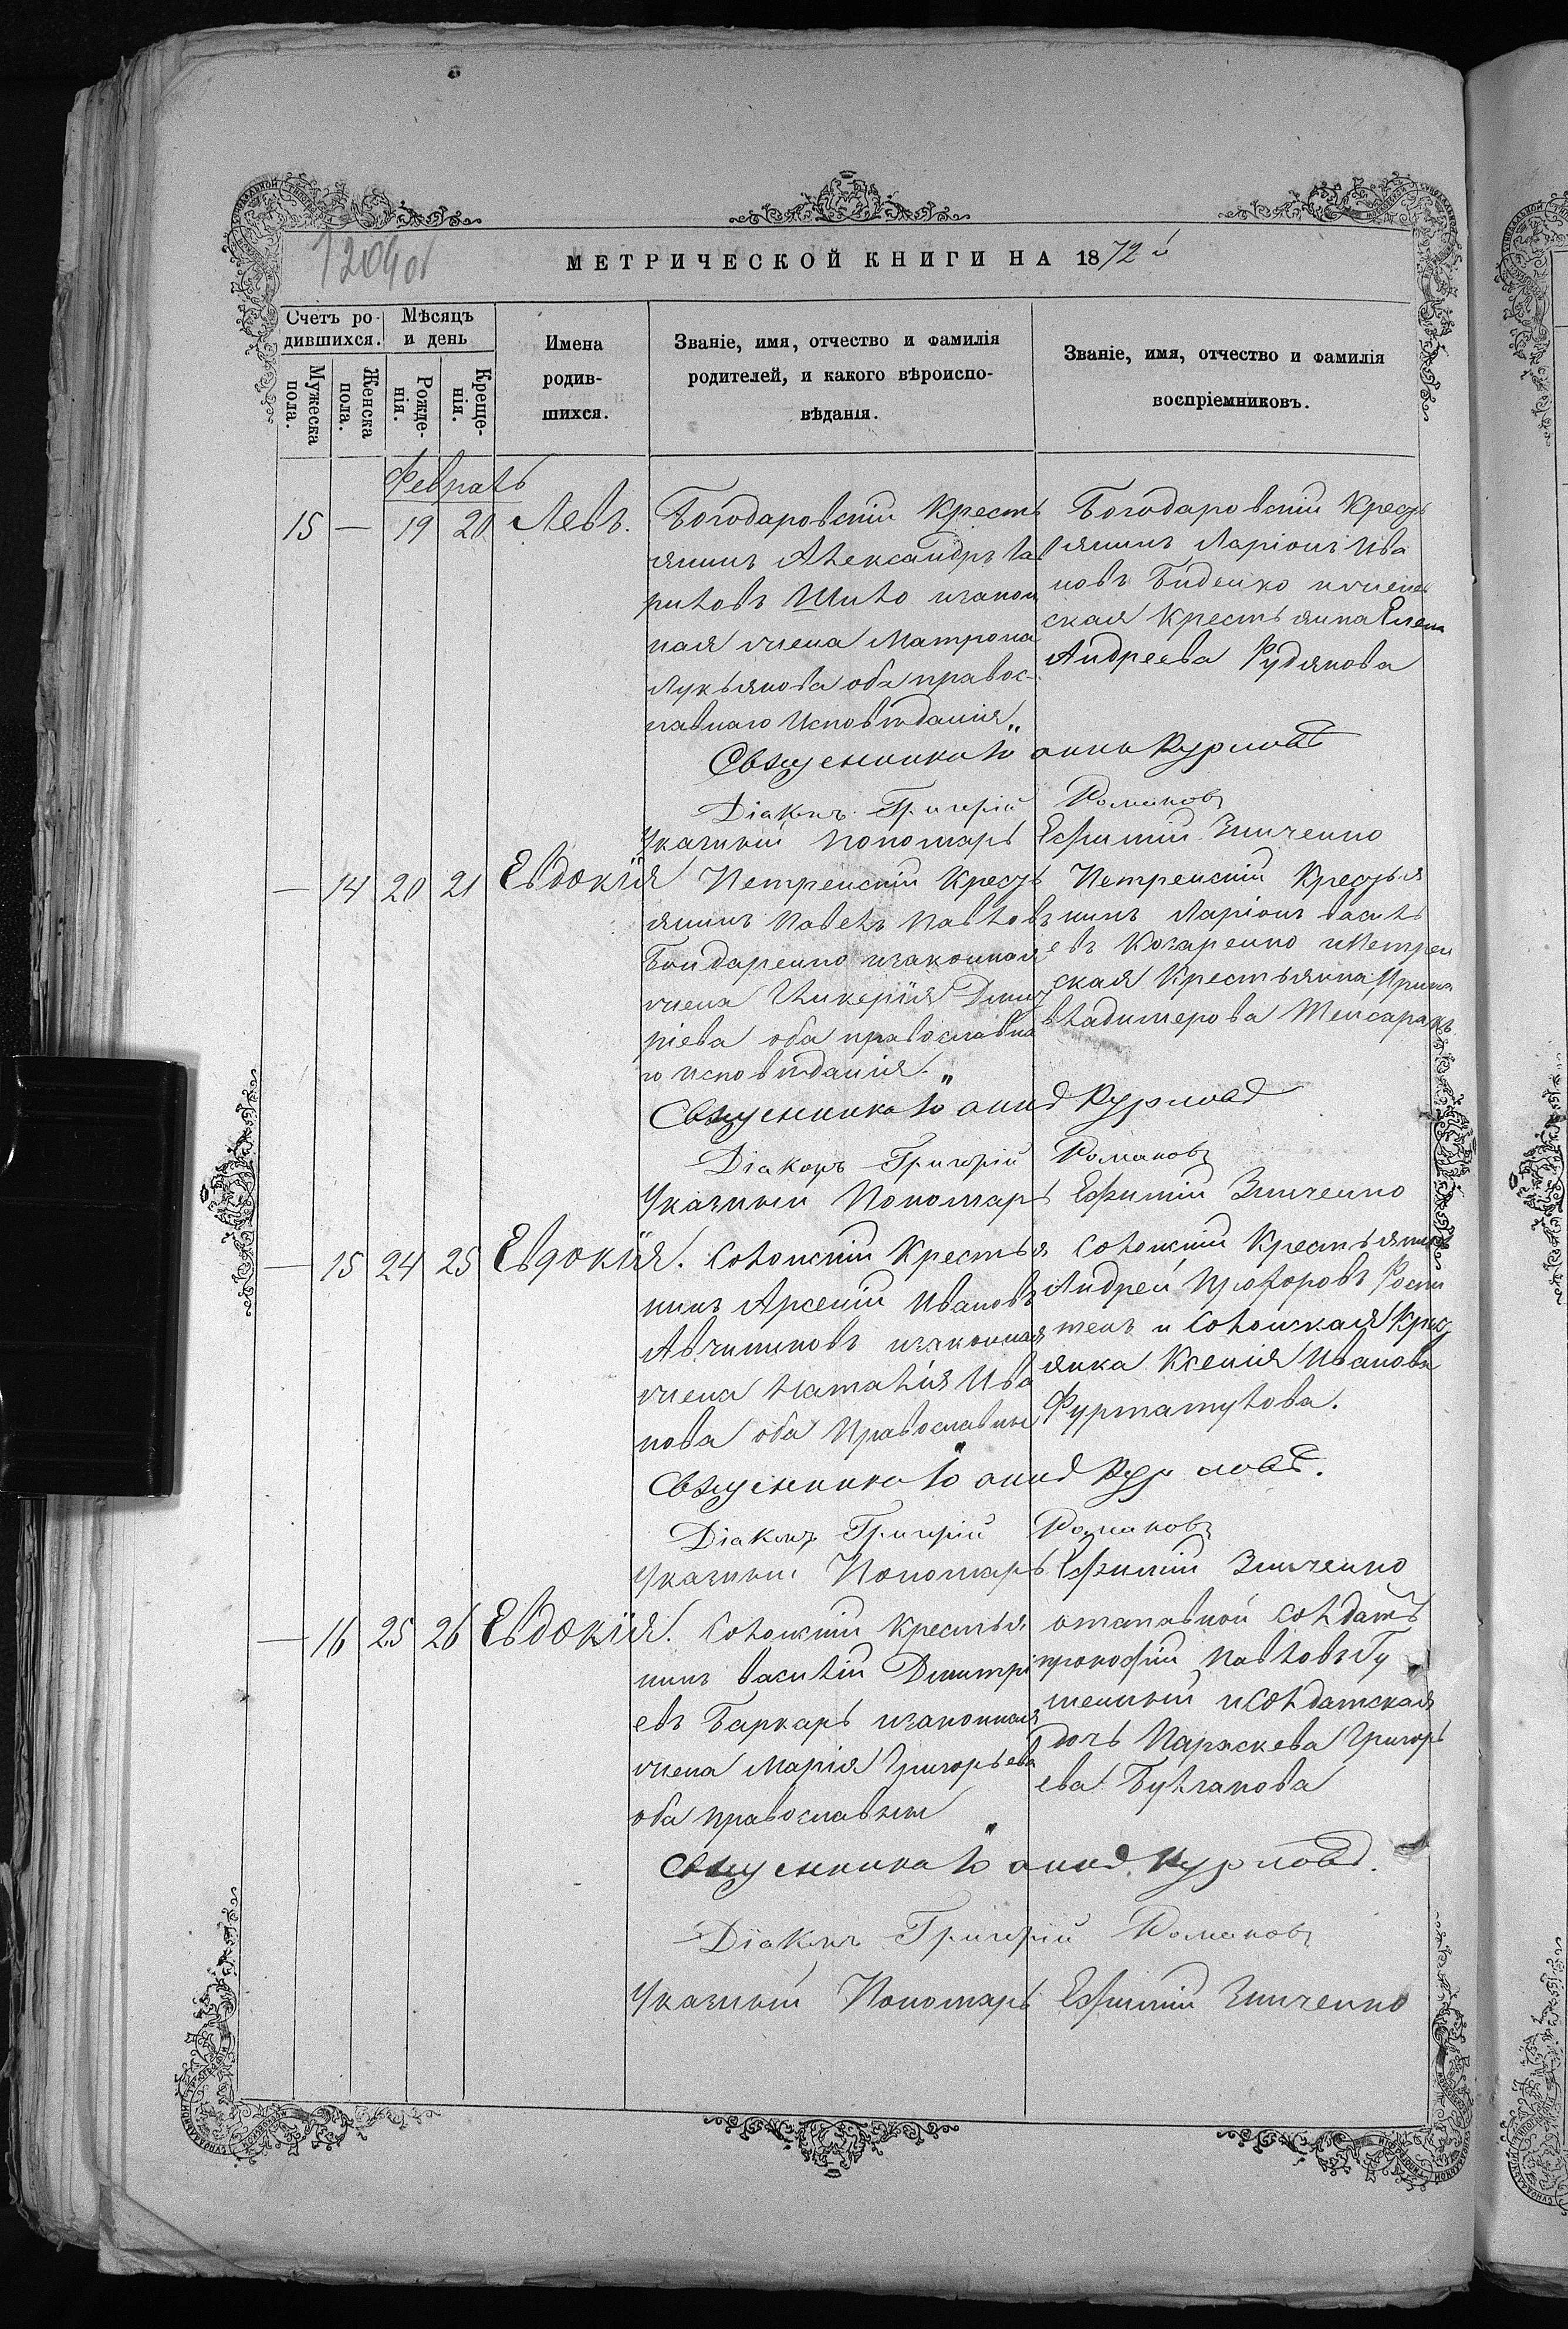 1204об
МЕТРИЧЕСКОЙ КНИГИ НА 1872й
Счетъ ро-
дившихся.
Мѣсяцъ
и день
Мужеска
пола.
Женска
пола.
Рожде-
нія.
Креще-
нія.
Имена
родив-
шихся.
Званіе, имя, отчество и фамилія
родителей, и какого вѣроиспо-
вѣданія.
Званіе, имя, отчество и фамилія
воспріемниковъ.
Февраль
15 — 19 20 Левъ.
Богодаровскій Кресть
янинъ Александръ Гав
риловъ Шило изакон
ная жена Матрона
Лукьянова оба правос-
лавнаго Исповѣданія
Богодаровскій Кресть
янинъ Ларіонъ Ива
новъ Биденко
ская Крестьянка Елена
Андреева Рудякова
Священникъ Іоаннъ Курловъ
Діаконъ Григорій Романовъ
Указный Пономарь Ефимій Зинченко
— 14 20 21 Евдокія
Петренскій Кресть
янинъ Павелъ Павловъ
Бондаренко изаконная
жена Гликерія Димит
ріева оба православна
го исповѣданія.
Петренскій Крестья
нинъ Ларіонъ Василь
евъ Козаренко иПетрен
ская Крестьянка Ирина
Владимерова
Священникъ Іоаннъ Курловъ
Діаконъ Григорій Романовъ
Указный Пономарь Ефимій Зинченко
— 15 24 25 Евдокія.
Солонскій Крестья
нинъ Арсеній Ивановъ
Овчиниковъ изаконная
жена Наталія Ива
нова оба Православные
Солонскій Крестьянинъ
Андрей Прохоровъ
и Солонская Крест
янка Ксенія Иванова
Фурматулова.
Священникъ Іоаннъ Курловъ.
Діаконъ Григорій Романовъ
Указный Пономарь Ефимій Зинченко
— 16 25 26 Евдокія.
Солонскій Крестья
нинъ Василій Димитрі
евъ Баркарь изаконная
жена Марія Григорьева
оба православные
отставной Солдатъ
прокофій Павловъ Гу
менный иСолдатская
дочь Параскева Григорь
ева Булгакова
Священникъ Іоаннъ Курловъ.
Діаконъ Григорій Романовъ
Указный Пономарь Ефимій Зинченко